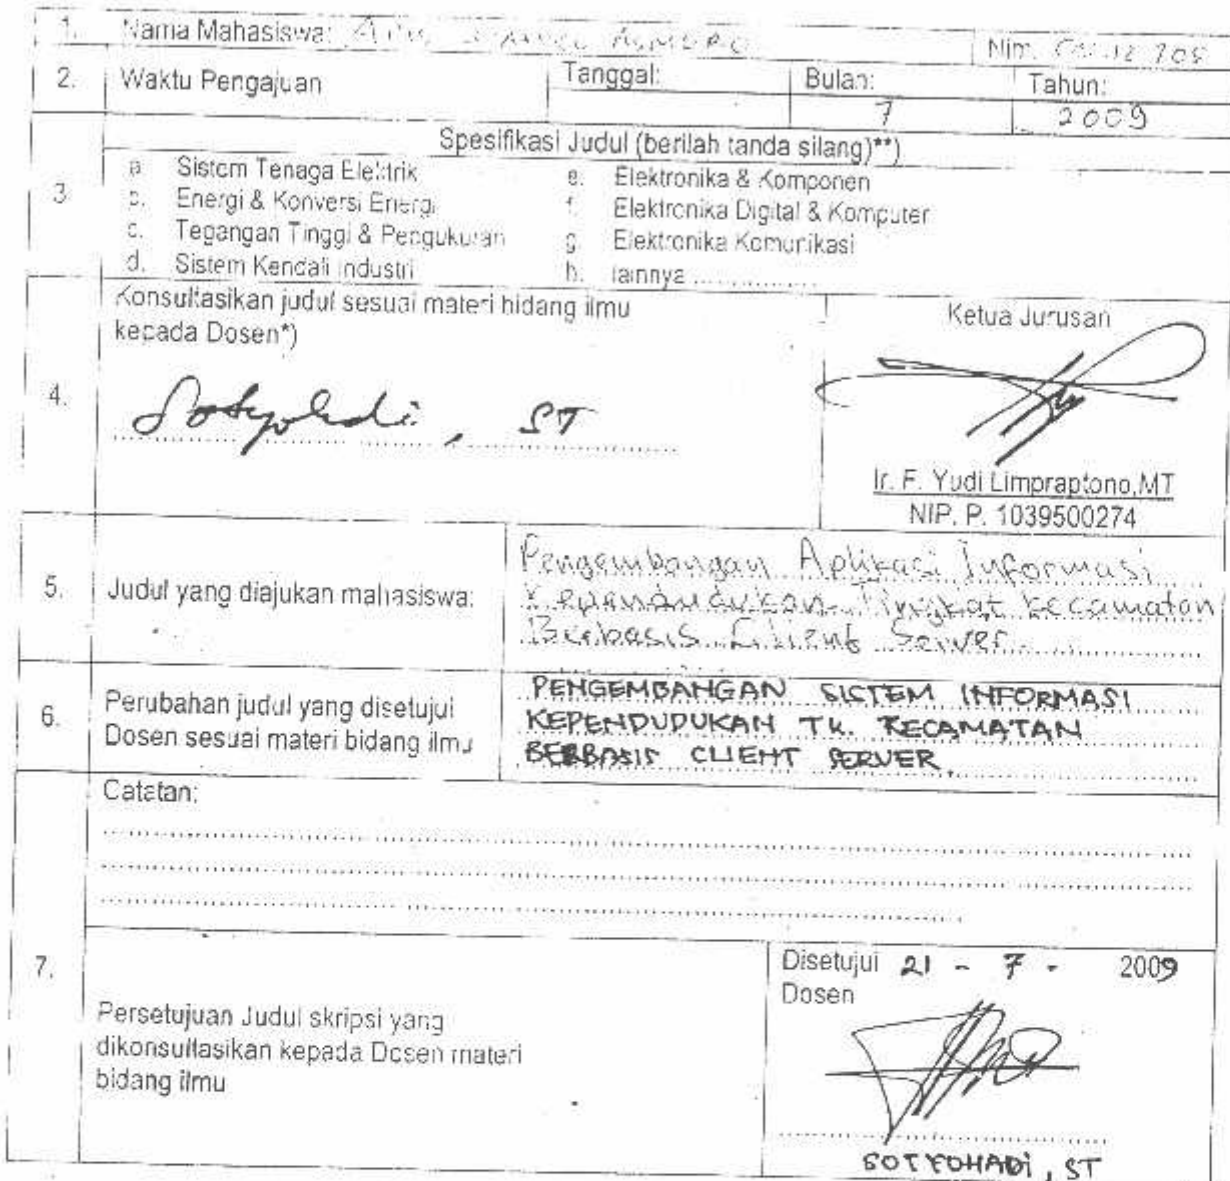 1. Nama Mahasiswa: Nim.
2. Waktu Pengajuan Tanggal: Bulan: Tahun:
7 2009
3. Spesifikasi Judul (berilah tanda silang)**)
a. Sistem Tenaga Elektrik
b. Energi & Konversi Energi
c. Tegangan Tinggi & Pengukuran
d. Sistem Kendali Industri
e. Elektronika & Komponen
f. Elektronika Digital & Komputer
g. Elektronika Komunikasi
h. lainnya ................
4. Konsultasikan judul sesuai materi bidang ilmu
kepada Dosen*)
Sotyohadi, ST
Ketua Jurusan
Ir. F. Yudi Limpraptono,MT
NIP. P. 1039500274
5. Judul yang diajukan mahasiswa:
Pengembangan Aplikasi Informasi
Kependudukan Tingkat Kecamatan
Berbasis Client Server
6. Perubahan judul yang disetujui
Dosen sesuai materi bidang ilmu
PENGEMBANGAN SISTEM INFORMASI
KEPENDUDUKAN TK. KECAMATAN
BERBASIS CLIENT SERVER.
Catatan:
7. Persetujuan Judul skripsi yang
dikonsultasikan kepada Dosen materi
bidang ilmu
Disetujui 21 - 7 - 2009
Dosen
SOTYOHADI, ST